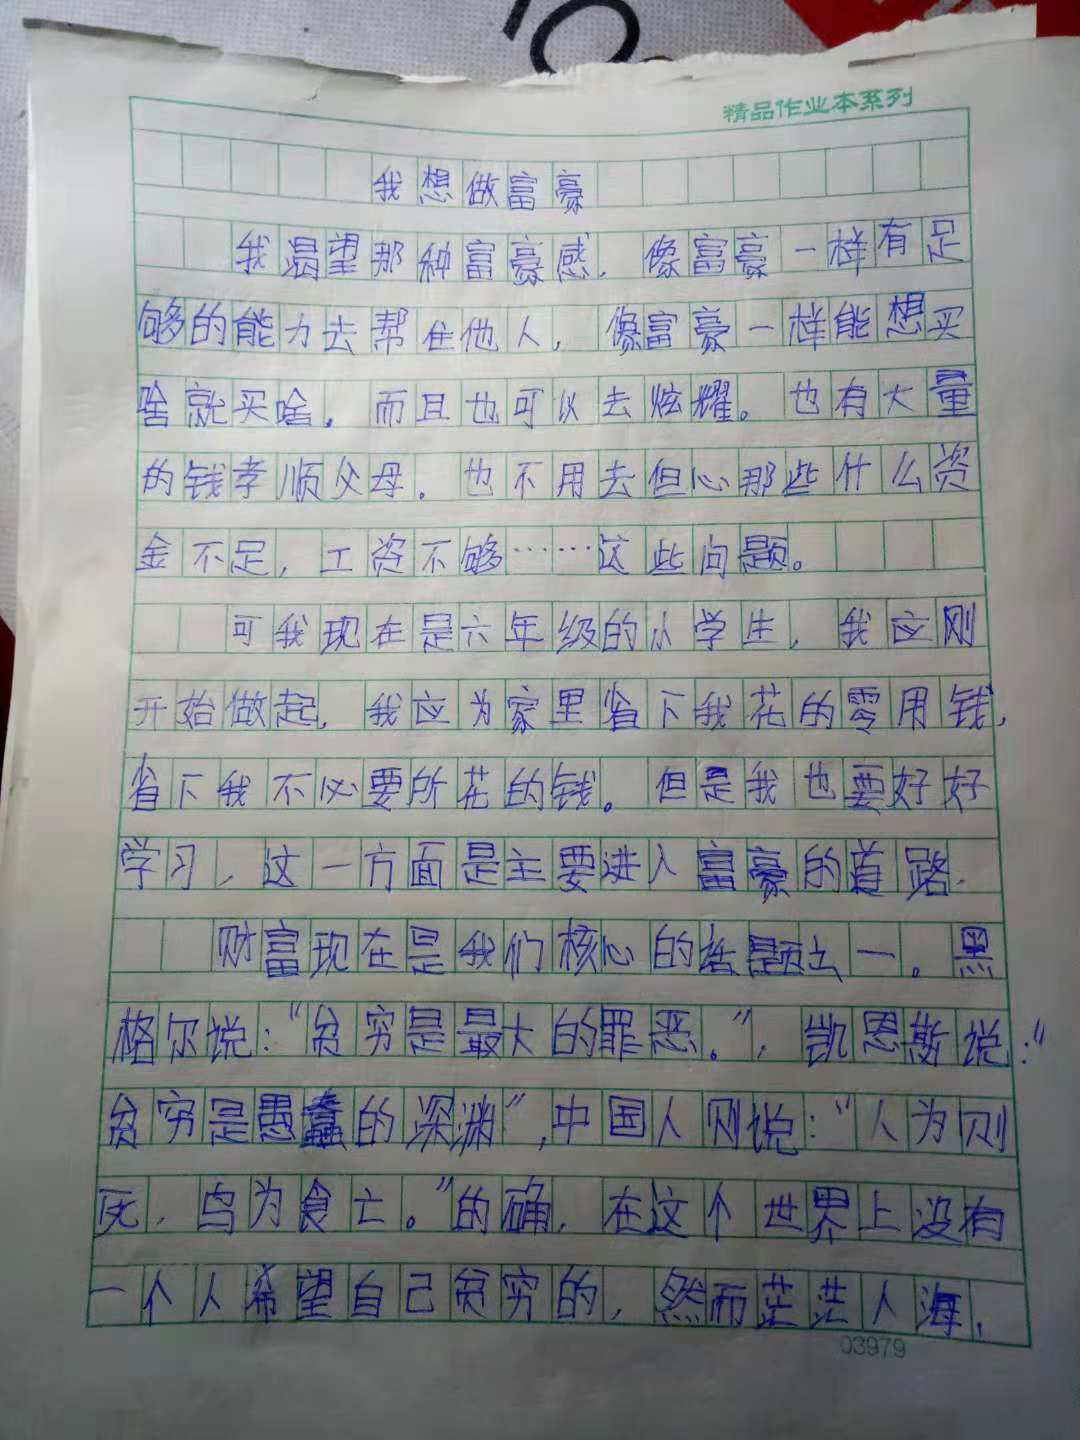 精品作业本系列
我想做富豪
我渴望那种富豪感，像富豪一样有足
够的能力去帮住他人，像富豪一样能想买
啥就买啥，而且也可以去炫耀。也有大量
的钱孝顺父母。也不用去但心那些什么资
金不足，工资不够……这些问题。
可我现在是六年级的小学生，我应刚
开始做起，我应为家里省下我花的零用钱，
省下我不必要所花的钱。但是我也要好好
学习，这一方面是主要进入富豪的道路。
财富现在是我们核心的话题之一。黑
格尔说：“贫穷是最大的罪恶。”，凯恩斯说：“
贫穷是愚蠢的深渊”，中国人则说：“人为则
死，鸟为食亡。”的确，在这个世界上没有
一个人希望自己贫穷的，然而茫茫人海，
03979